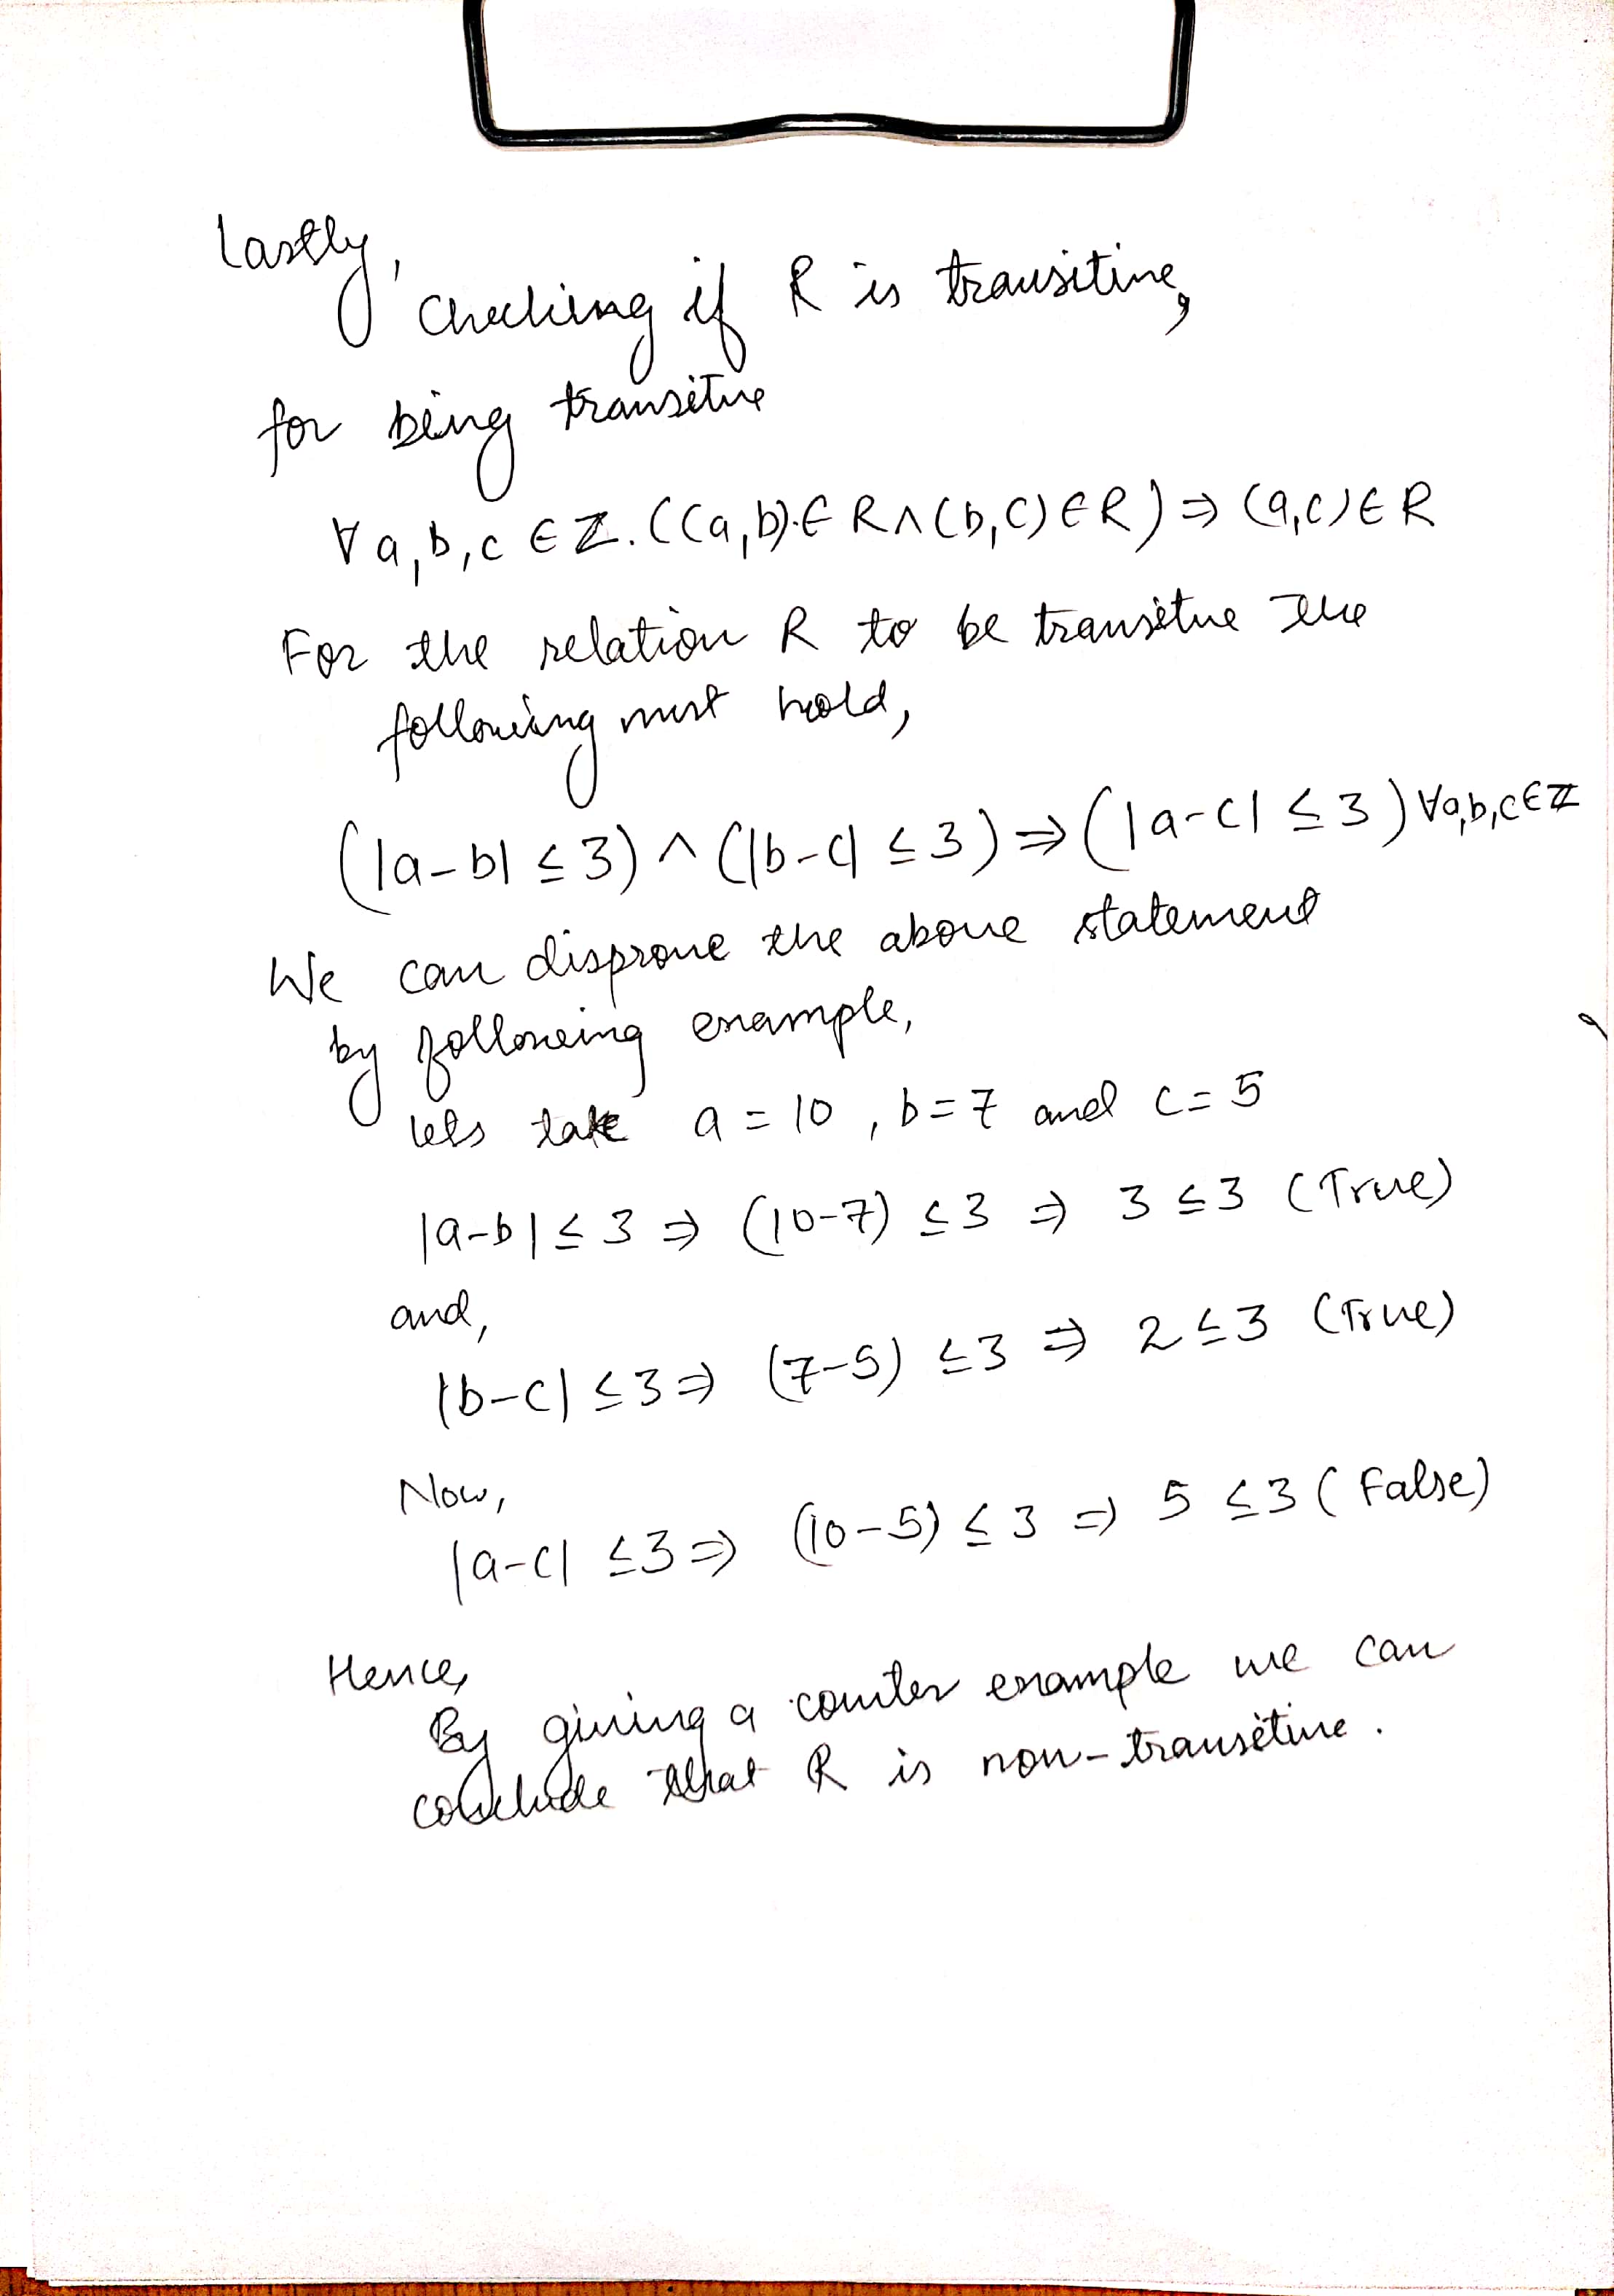 Lastly,
Checking if R is transitive,
for being transitive
∀ a, b, c ∈ Z. ((a, b) ∈ R ∧ (b, c) ∈ R) ⇒ (a, c) ∈ R
For the relation R to be transitive the
following must hold,
(|a-b| ≤ 3) ∧ (|b-c| ≤ 3) ⇒ (|a-c| ≤ 3) ∀a,b,c ∈ Z
We can disprove the above statement
by following example,
lets take a = 10, b = 7 and c = 5
|a-b| ≤ 3 ⇒ (10-7) ≤ 3 ⇒ 3 ≤ 3 (True)
and,
|b-c| ≤ 3 ⇒ (7-5) ≤ 3 ⇒ 2 ≤ 3 (True)
Now,
|a-c| ≤ 3 ⇒ (10-5) ≤ 3 ⇒ 5 ≤ 3 (False)
Hence,
By giving a counter example we can
conclude that R is non-transitive.